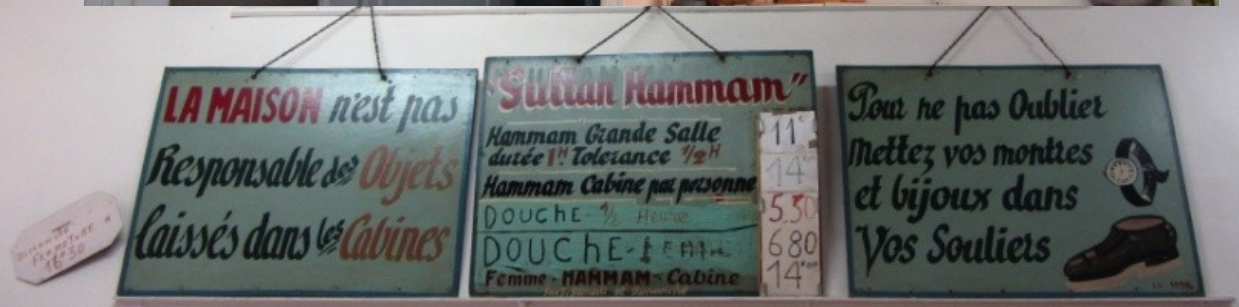 DIMANCHE
FERMETURE
16H30
LA MAISON n'est pas
Responsable des Objets
laissés dans les Cabines
"Sultan Hammam"
Hammam Grande Salle 11
durée 1H Tolerance 1/2H
Hammam Cabine par personne 14
DOUCHE - 1/2 Heure 5.50
DOUCHE - 680
Femme - HAMMAM - Cabine 14
Pour ne pas Oublier
Mettez vos montres
et bijoux dans
Vos Souliers